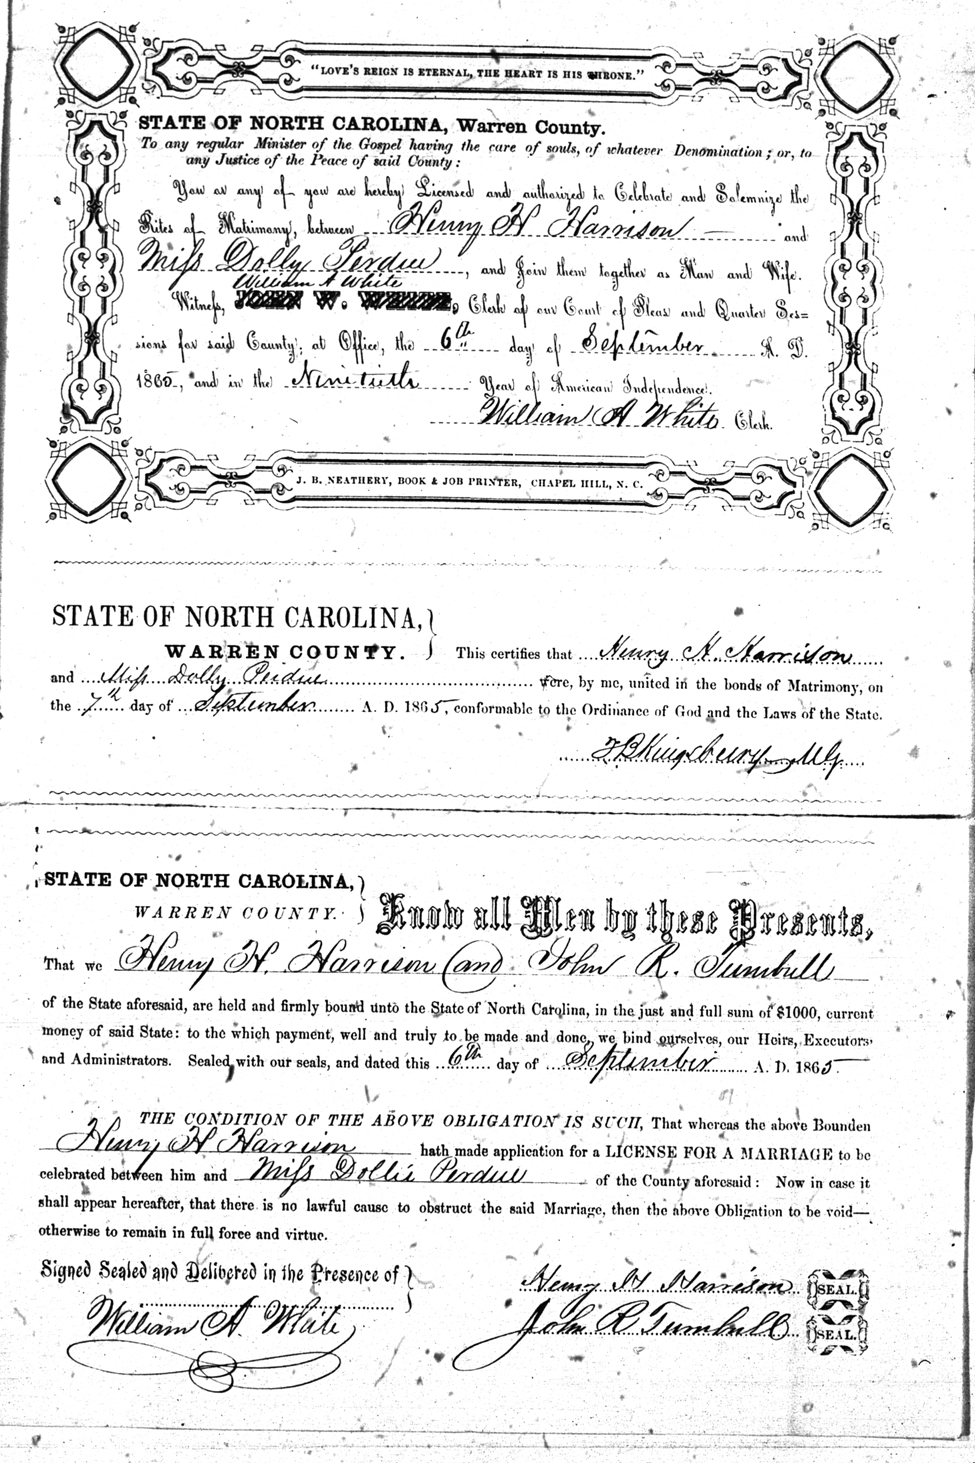 "LOVE'S REIGN IS ETERNAL, THE HEART IS HIS THRONE."
STATE OF NORTH CAROLINA, Warren County.
To any regular Minister of the Gospel having the care of souls, of whatever Denomination; or, to
any Justice of the Peace of said County:
You or any of you are hereby Licensed and authorized to Celebrate and Solemnize the
Rites of Matrimony, between Henry H Harrison and
Miss Dolly Perdue, and Join them together as Man and Wife.
William A White
Witness, Clerk of our Court of Pleas and Quarter Ses=
sions for said County, at Office, the 6th day of September A. D.
1865, and in the Ninetieth Year of American Independence.
William A White Clerk.
J. B. NEATHERY, BOOK & JOB PRINTER, CHAPEL HILL, N. C.
STATE OF NORTH CAROLINA,
WARREN COUNTY. This certifies that Henry H. Harrison
and Miss Dolly Perdue were, by me, united in the bonds of Matrimony, on
the 7th day of September A. D. 1865, conformable to the Ordinance of God and the Laws of the State.
T B Kingsbury M G.
STATE OF NORTH CAROLINA,
WARREN COUNTY. Know all Men by these Presents,
That we Henry H. Harrison and John R. Turnbull
of the State aforesaid, are held and firmly bound unto the State of North Carolina, in the just and full sum of $1000, current
money of said State: to the which payment, well and truly to be made and done, we bind ourselves, our Heirs, Executors
and Administrators. Sealed with our seals, and dated this 6th day of September A. D. 1865
THE CONDITION OF THE ABOVE OBLIGATION IS SUCH, That whereas the above Bounden
Henry H Harrison hath made application for a LICENSE FOR A MARRIAGE to be
celebrated between him and Miss Dollie Perdue of the County aforesaid: Now in case it
shall appear hereafter, that there is no lawful cause to obstruct the said Marriage, then the above Obligation to be void—
otherwise to remain in full force and virtue.
Signed Sealed and Delivered in the Presence of
Henry H Harrison SEAL.
William A. White
John R Turnbull SEAL.